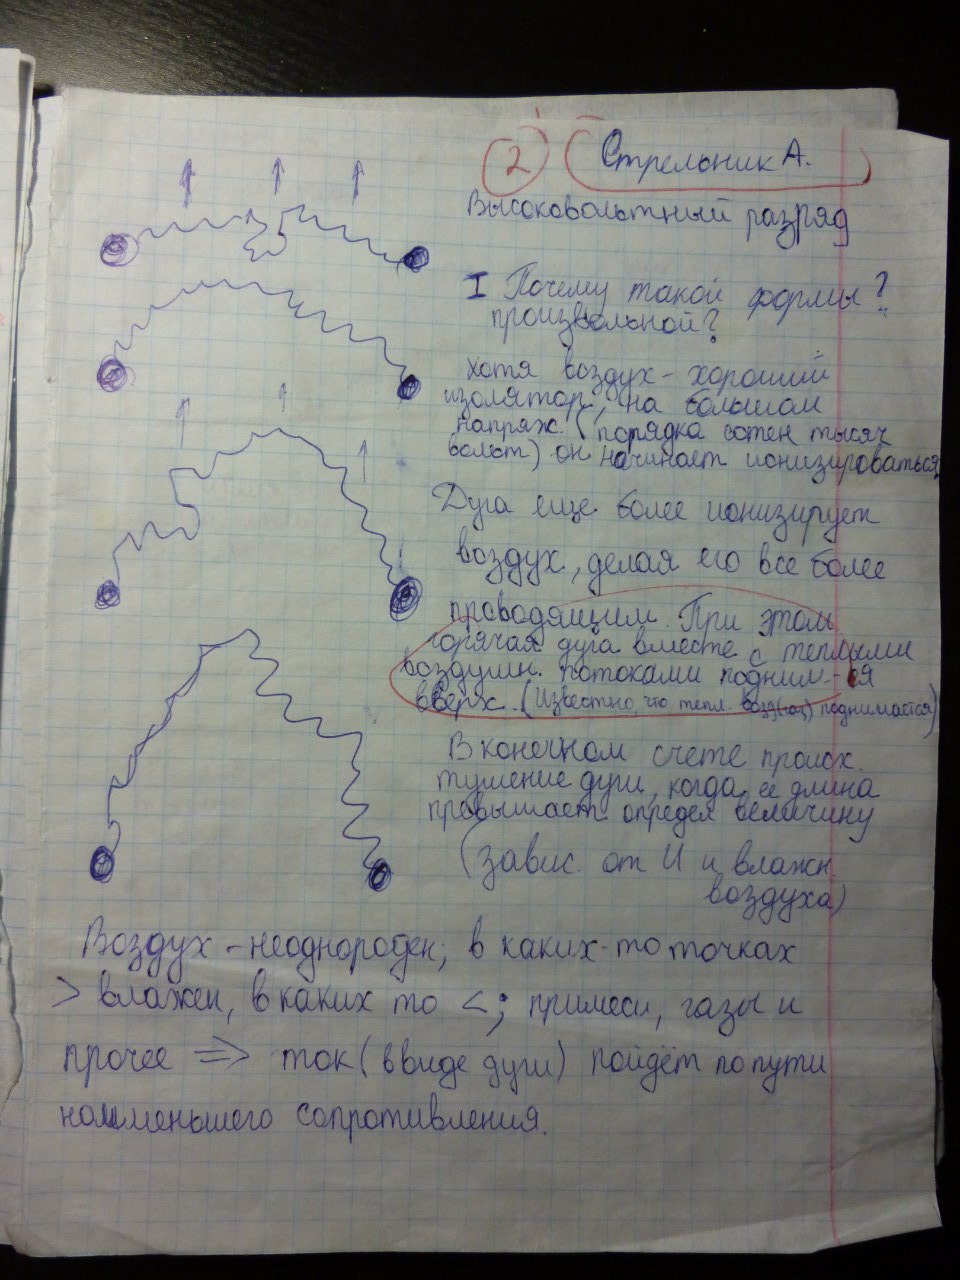 2 Стрельник А.
Высоковольтный разряд
I Почему такой формы?
произвольной?
хотя воздух - хороший
изолятор, на большом
напряж. (порядка сотен тысяч
вольт) он начинает ионизироваться,
Дуга еще более ионизирует
воздух, делая его все более
проводящим. При этом
горячая дуга вместе с теплыми
воздушн. потоками подним-ся
вверх. (Известно, что тепл. возд(газ) поднимается)
В конечном счете происх.
тушение дуги, когда ее длина
превышает определ величину
(завис. от U и влажн.
воздуха)
Воздух - неоднороден; в каких-то точках
> влажен, в каких то <; примеси, газы и
прочее => ток (в виде дуги) пойдёт по пути
наименьшего сопротивления.